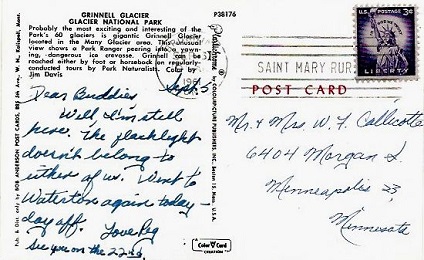 GRINNELL GLACIER
GLACIER NATIONAL PARK
Probably the most exciting and interesting of the
Park's 60 glaciers is gigantic Grinnell Glacier
located in the Many Glacier area. This unusual
view shows a Park Ranger peering into a yawn-
ing, dangerous ice crevasse. Grinnell can be
reached either by foot or horseback on regularly-
conducted tours by Park Naturalists. Color by
Jim Davis
Dear Buddies Sept 5
Well I'm still
here. The flashlight
doesn't belong to
either of us. Went to
Waterton again today -
day off. Love Peg
See you on the 22nd.
Pub. & Dist. only by BOB ANDERSON POST CARDS, Kalispell, Mont.
P38176
Plastichrome
by COLOURPICTURE PUBLISHERS, INC., Boston 15, Mass., U.S.A.
Color Card
CREATION
SAINT MARY RUR.
U.S. POSTAGE 3¢
IN GOD WE TRUST
LIBERTY
POST CARD
Mr. & Mrs. W. F. Callicotte
6404 Morgan S.
Minneapolis 23,
Minnesota